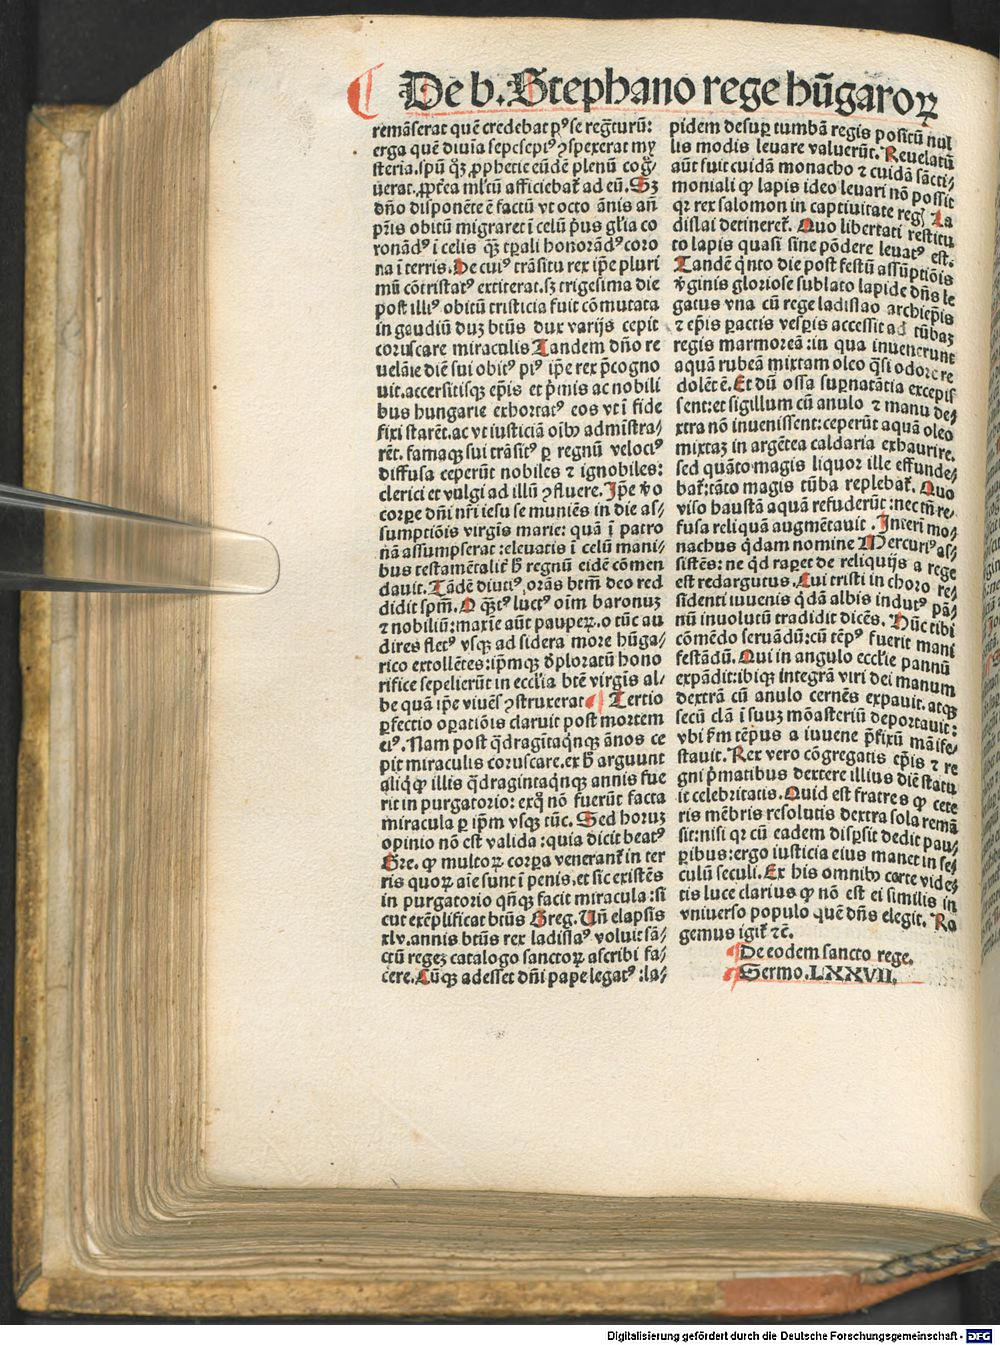 De b. Stephano rege hūgaroꝝ
remāserat quē credebat pꝰ se regt̄urū:
erga quē diuīa sepcsepiꝰ ꝯspexerat my
steria. spū qꝫ ꝓphetie eūdē plenū coḡ
uerat. ꝓpt̄ea ml̄tū afficiebat̄ ad eū. Sꝫ
dño disponēte ē factū vt octo ānis añ
pr̄is obitū migraret ī celū pꝰus gl̄ia co
ronādꝰ ī celis qꝫ tꝑali honorādꝰ coro
na ī terris. De cuiꝰ trāsitu rex ip̄e pluri
mū cōtristatꝰ extiterat. sꝫ trigesima die
post illiꝰ obitū tristicia fuit cōmutata
in gaudiū duꝫ btūs dux varijs cepit
coruscare miraculis Tandem dño re
uelāte diē sui obitꝰ piꝰ ip̄e rex p̄cogno
uit. accersitisqꝫ ep̄is et p̄mis ac nobili
bus hungarie exhortatꝰ eos vt ī fide
fixi starēt. ac vt iusticiā oībꝰ admīstra/
rēt. famaqꝫ sui trāsitꝰ ꝑ regnū velociꝰ
diffusa ceperūt nobiles ⁊ ignobiles:
clerici et vulgi ad illū ꝯfluere. Ip̄e v̄o
corpe dñi nr̄i iesu se muniēs in die as/
sumptiōis virgīs marie: quā ī patro
nā assumpserat: eleuatis ī celū mani/
bus testamētalit̄ h̄ regnū eidē cōmen
dauit. Tādē diutiꝰ orās btm̄ deo red
didit spm̄. O qꝫtꝰ luctꝰ oīm baronuꝫ
⁊ nobiliū: maxīe aūt pauperꝝ. o tūc au
dires fletꝰ vsqꝫ ad sidera more hūga/
rico extollētes: ip̄mqꝫ d̄ploratū hono
rifice sepelierūt in eccl̄ia btē virgīs al/
be quā ip̄e viuēs ꝯstruxerat ¶ Tertio
ꝑfectio oꝑatiōis claruit post mortem
eiꝰ. Nam post q̄dragītaqnqꝫ ānos ce
pit miraculis coruscare. ex h̄ arguunt
aliqͥ qꝫ illis q̄dragintaqnqꝫ annis fue
rit in purgatorio: exquo nō fuerūt facta
miracula ꝑ ip̄m vsqꝫ tūc. Sed horuꝫ
opinio nō est valida: quia dicit beatꝰ
Gre. ꝙ multoꝝ corꝑa venerant̄ in ter
ris quoꝝ aīe sunt ī penis. et sic existēs
in purgatorio qn̄qꝫ facit miracula: si
cut exēplificat btūs Greg. Uñ elapsis
xlv. annis btūs rex ladislaꝰ voluit sā/
ctū regeꝫ catalogo sanctoꝝ ascribi fa/
cere. Cūqꝫ adesset dñi pape legatꝰ: la/
pidem desuꝑ tumbā regis positū nul
lis modis leuare valuerūt. Reuelatū
aūt fuit cuidā monacho ⁊ cuidā sācti/
moniali ꝙ lapis ideo leuari nō possit
qꝛ rex salomon in captiuitate regꝭ La
dislai detineret̄. Quo libertati restitu
to lapis quasi sine pōdere leuatꝰ est.
Tandē qͥnto die post festū assūptiōis
v̄ginis gloriose sublato lapide dñs le
gatus vna cū rege ladislao archiep̄is
⁊ ep̄is ꝑactis vesꝑis accessit ad tūbaꝫ
regis marmoreā: in qua inuenerunt
aquā rubeā mixtam oleo qͣsi odore re
dolēt ē. Et dū ossa suꝑnatātia excepis
sent: et sigillum cū anulo ⁊ manu de/
xtra nō inuenissent: ceperūt aquā oleo
mixtaꝫ in argētea caldaria exhaurire.
sed quāto magis liquor ille effunde/
bat̄: tāto magis tūba replebat̄. Quo
viso haustā aquā refuderūt: nec tn̄ re/
fusa reliquā augmētauit. Interī mo/
nachus qͥdam nomine Mercuriꝰ as/
sistēs: ne qͥd raꝑet de reliquijs a rege
est redargutus. Cui tristi in choro re/
sidenti iuuenis qͥdā albis indutꝰ pā/
nū inuolutū tradidit dicēs. Hūc tibi
cōmēdo seruādū: cū tēpꝰ fuerit mani
festādū. Qui in angulo eccl̄ie pannū
expādit: ibiqꝫ integrā viri dei manum
dextrā cū anulo cernēs expauit. atqꝫ
secū clā ī suuꝫ mōasteriū deportauit:
vbi fm̄ tēpus a iuuene p̄fixū māife/
stauit. Rex vero cōgregatis ep̄is ⁊ re
gni p̄matibus dextere illius diē statu
it celebritatis. Quid est fratres ꝙ cete
ris mēbris resolutis dextra sola remā
sit: nisi qꝛ cū eadem disꝑsit dedit pau/
ꝑibus: ergo iusticia eius manet in se/
culū seculi. Ex his omnibꝰ certe vide/
tis luce clarius ꝙ nō est ei similis in
vniuerso populo quē dñs elegit. Ro
gemus igit̄ ⁊c̄.
¶ De eodem sancto rege.
¶ Sermo. LXXVII.
Digitalisierung gefördert durch die Deutsche Forschungsgemeinschaft - DFG